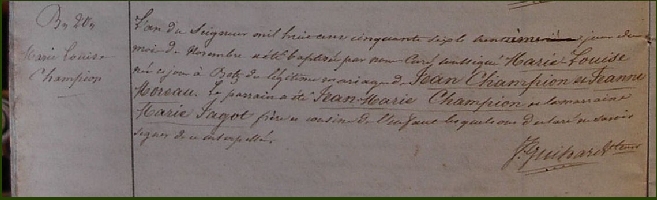 Marie Louise
Champion
L'an du Seigneur mil huit cent cinquante six le jour du
mois de Novembre a été baptisée par nous Curé soussigné Marie Louise
née ce jour à du légitime mariage de Jean Champion et Jeanne
Moreau. Le parrain a été Jean-Marie Champion et la marraine
Marie Jagot, frère et cousine de l'enfant lesquels ont déclaré ne savoir
signer de ce interpellés.